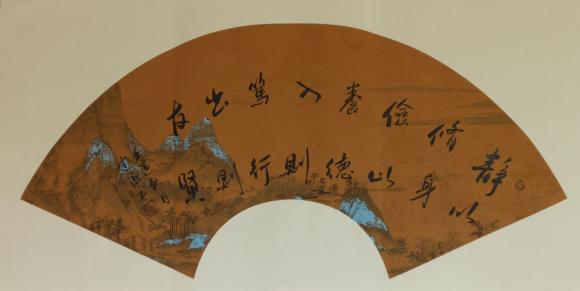 靜以
脩身
儉以
養德
入則
篤行
出則
友賢